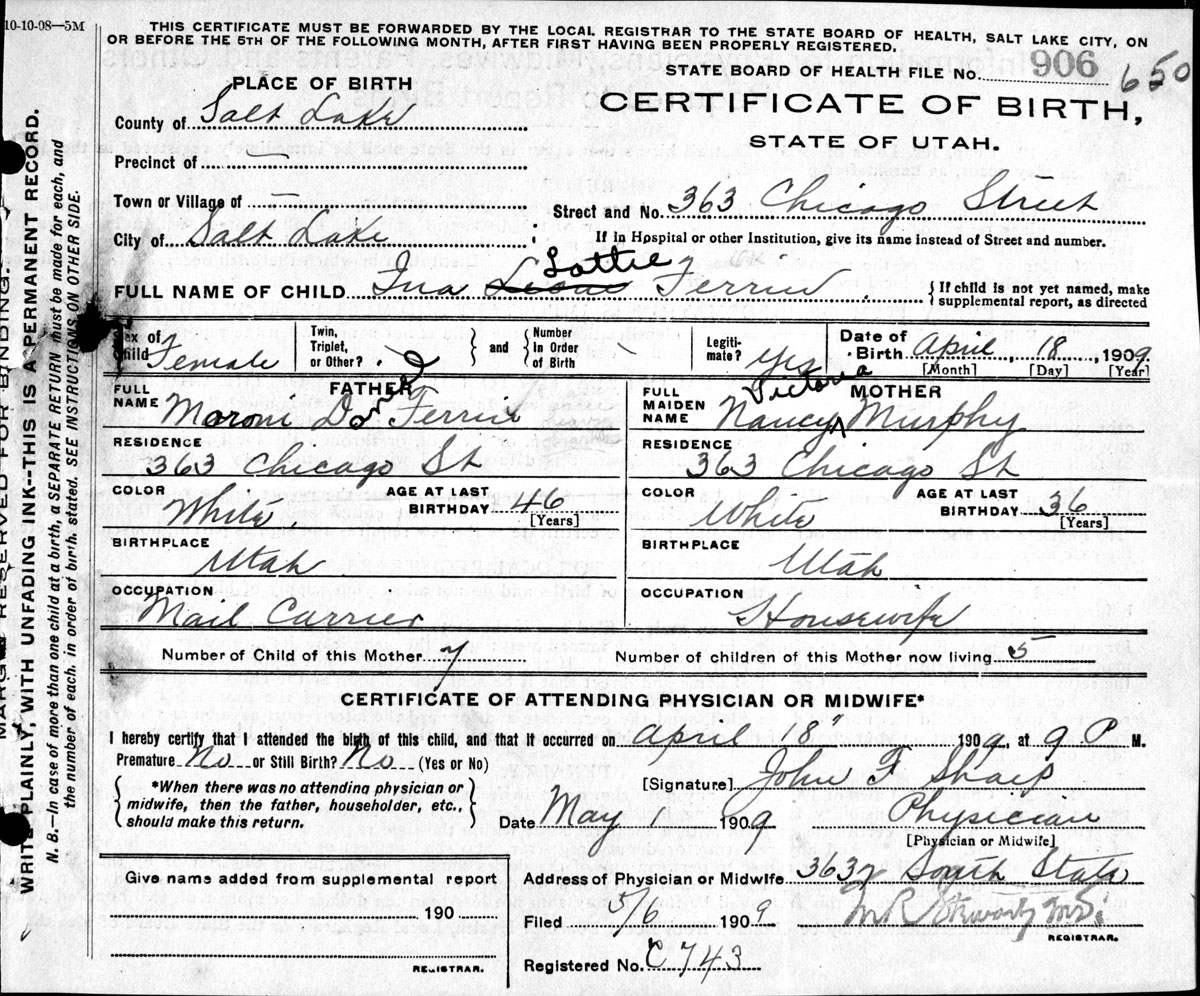 10-10-08—5M
THIS CERTIFICATE MUST BE FORWARDED BY THE LOCAL REGISTRAR TO THE STATE BOARD OF HEALTH, SALT LAKE CITY, ON
OR BEFORE THE 5TH OF THE FOLLOWING MONTH, AFTER FIRST HAVING BEEN PROPERLY REGISTERED.
STATE BOARD OF HEALTH FILE No. 906 650
PLACE OF BIRTH
CERTIFICATE OF BIRTH,
STATE OF UTAH.
County of Salt Lake
Precinct of —
Town or Village of —
Street and No. 363 Chicago Street
City of Salt Lake
If in Hospital or other Institution, give its name instead of Street and number.
Lottie
FULL NAME OF CHILD Ina Ferrin
{If child is not yet named, make
supplemental report, as directed
Sex of Child Female
Twin, Triplet, or Other?
and
Number In Order of Birth
Legiti- mate? Yes
Date of Birth April 18, 1909
[Month] [Day] [Year]
FATHER
FULL NAME Moroni Ferrin
RESIDENCE
363 Chicago St
COLOR White
AGE AT LAST BIRTHDAY 46
[Years]
BIRTHPLACE
Utah
OCCUPATION
Mail Carrier
MOTHER
Victoria
FULL MAIDEN NAME Nancy Murphy
RESIDENCE
363 Chicago St
COLOR White
AGE AT LAST BIRTHDAY 36
[Years]
BIRTHPLACE
Utah
OCCUPATION
Housewife
Number of Child of this Mother 7
Number of children of this Mother now living 5
CERTIFICATE OF ATTENDING PHYSICIAN OR MIDWIFE*
I hereby certify that I attended the birth of this child, and that it occurred on April 18" 1909, at 9 P M.
Premature No or Still Birth? No (Yes or No)
{*When there was no attending physician or
midwife, then the father, householder, etc.,
should make this return.
[Signature] John F Sharp
Date May 1909
Physician
[Physician or Midwife]
Give name added from supplemental report
190
REGISTRAR.
Address of Physician or Midwife South State
Filed 5/6 1909
REGISTRAR.
Registered No. C743
MARGIN RESERVED FOR BINDING.
WRITE PLAINLY, WITH UNFADING INK--THIS IS A PERMANENT RECORD.
N. B.—In case of more than one child at a birth, a SEPARATE RETURN must be made for each, and
the number of each, in order of birth, stated. SEE INSTRUCTIONS ON OTHER SIDE.